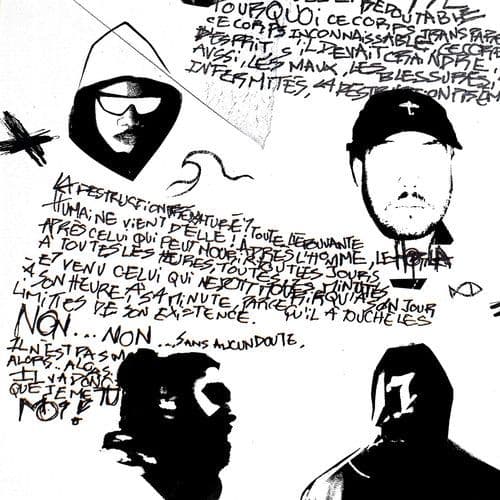 REDOUTABLE
POURQUOI CE CORPS TRANSPARENT
CE CORPS INCONNAISSABLE, CE CORPS
D'ESPRIT, S'IL DEVAIT CRAINDRE,
AUSSI, LES MAUX, LES BLESSURES,
INFIRMITÉS, LA DESTRUCTION PRÉM
LA DESTRUCTION PRÉMATURÉE?
HUMAINE VIENT D'ELLE! TOUTE L'ÉPOUVANTE
APRÈS CELUI QUI PEUT MOURIR APRÈS L'HOMME, LE
À TOUTES LES HEURES, TOUS LES JOURS
EST VENU CELUI QUI NE DOIT MINUTES
À SON HEURE, À SA MINUTE, PARCE QU'À SON JOUR
LIMITES DE SON EXISTENCE. QU'IL A TOUCHÉ LES
NON... NON... SANS AUCUN DOUTE,
IL N'EST PAS M
ALORS.. ALORS..
IL VA DONC
QUE JE ME TU
MOI!